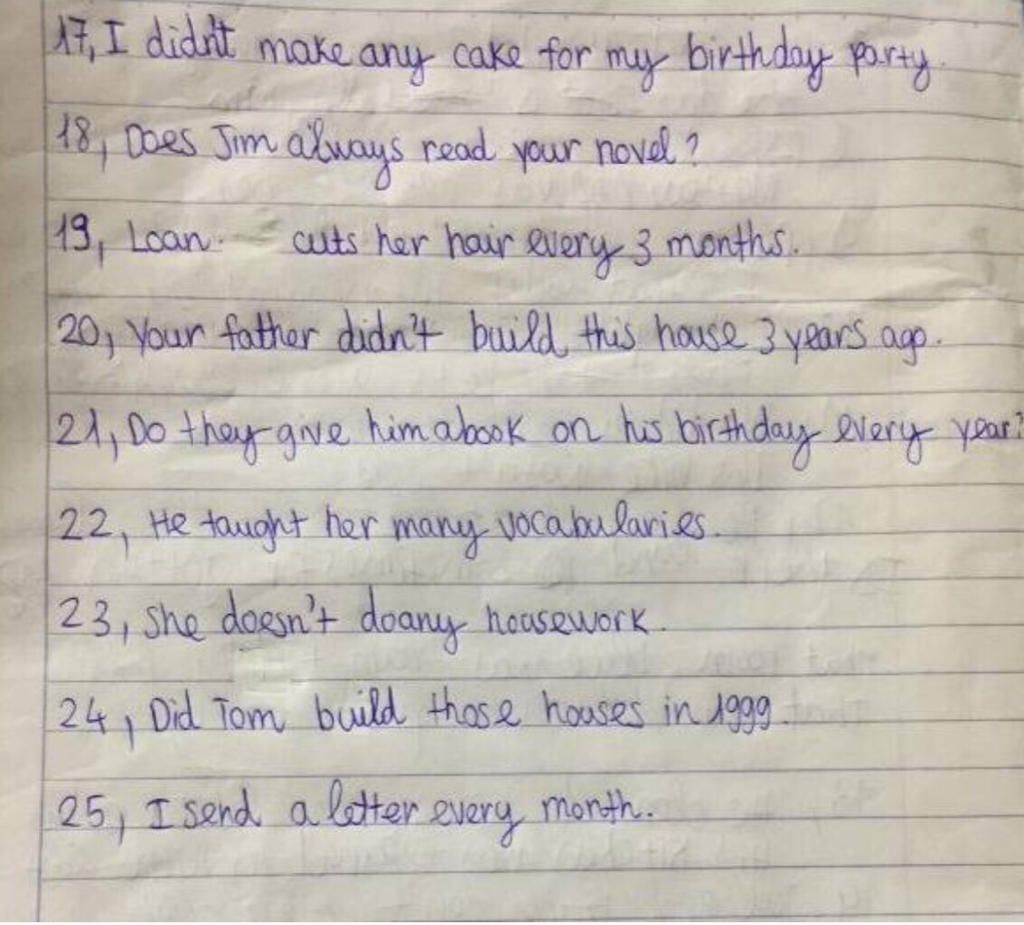 17, I didn't make any cake for my birthday party.
18, Does Jim always read your novel?
19, Loan cuts her hair every 3 months.
20, Your father didn't build this house 3 years ago.
21, Do they give him a book on his birthday every year?
22, He taught her many vocabularies.
23, She doesn't do any housework.
24, Did Tom build those houses in 1999.
25, I send a letter every month.